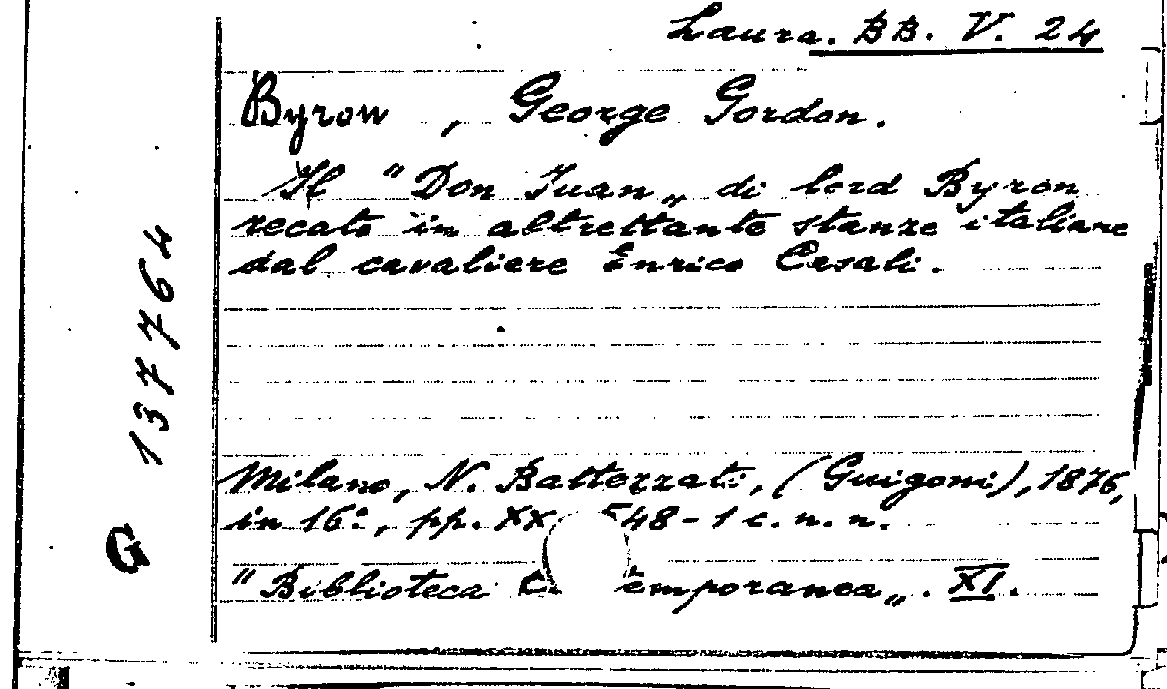 Laura. BB. V. 24
Byron, George Gordon.
Il "Don Juan„ di lord Byron
recato in altrettante stanze italiane
dal cavaliere Enrico Casali.
Milano, N. Battezzati, (Guigoni), 1876,
in 16°, pp. XX 548-1 c. n. n.
"Biblioteca C emporanea„. XI.
G 137764